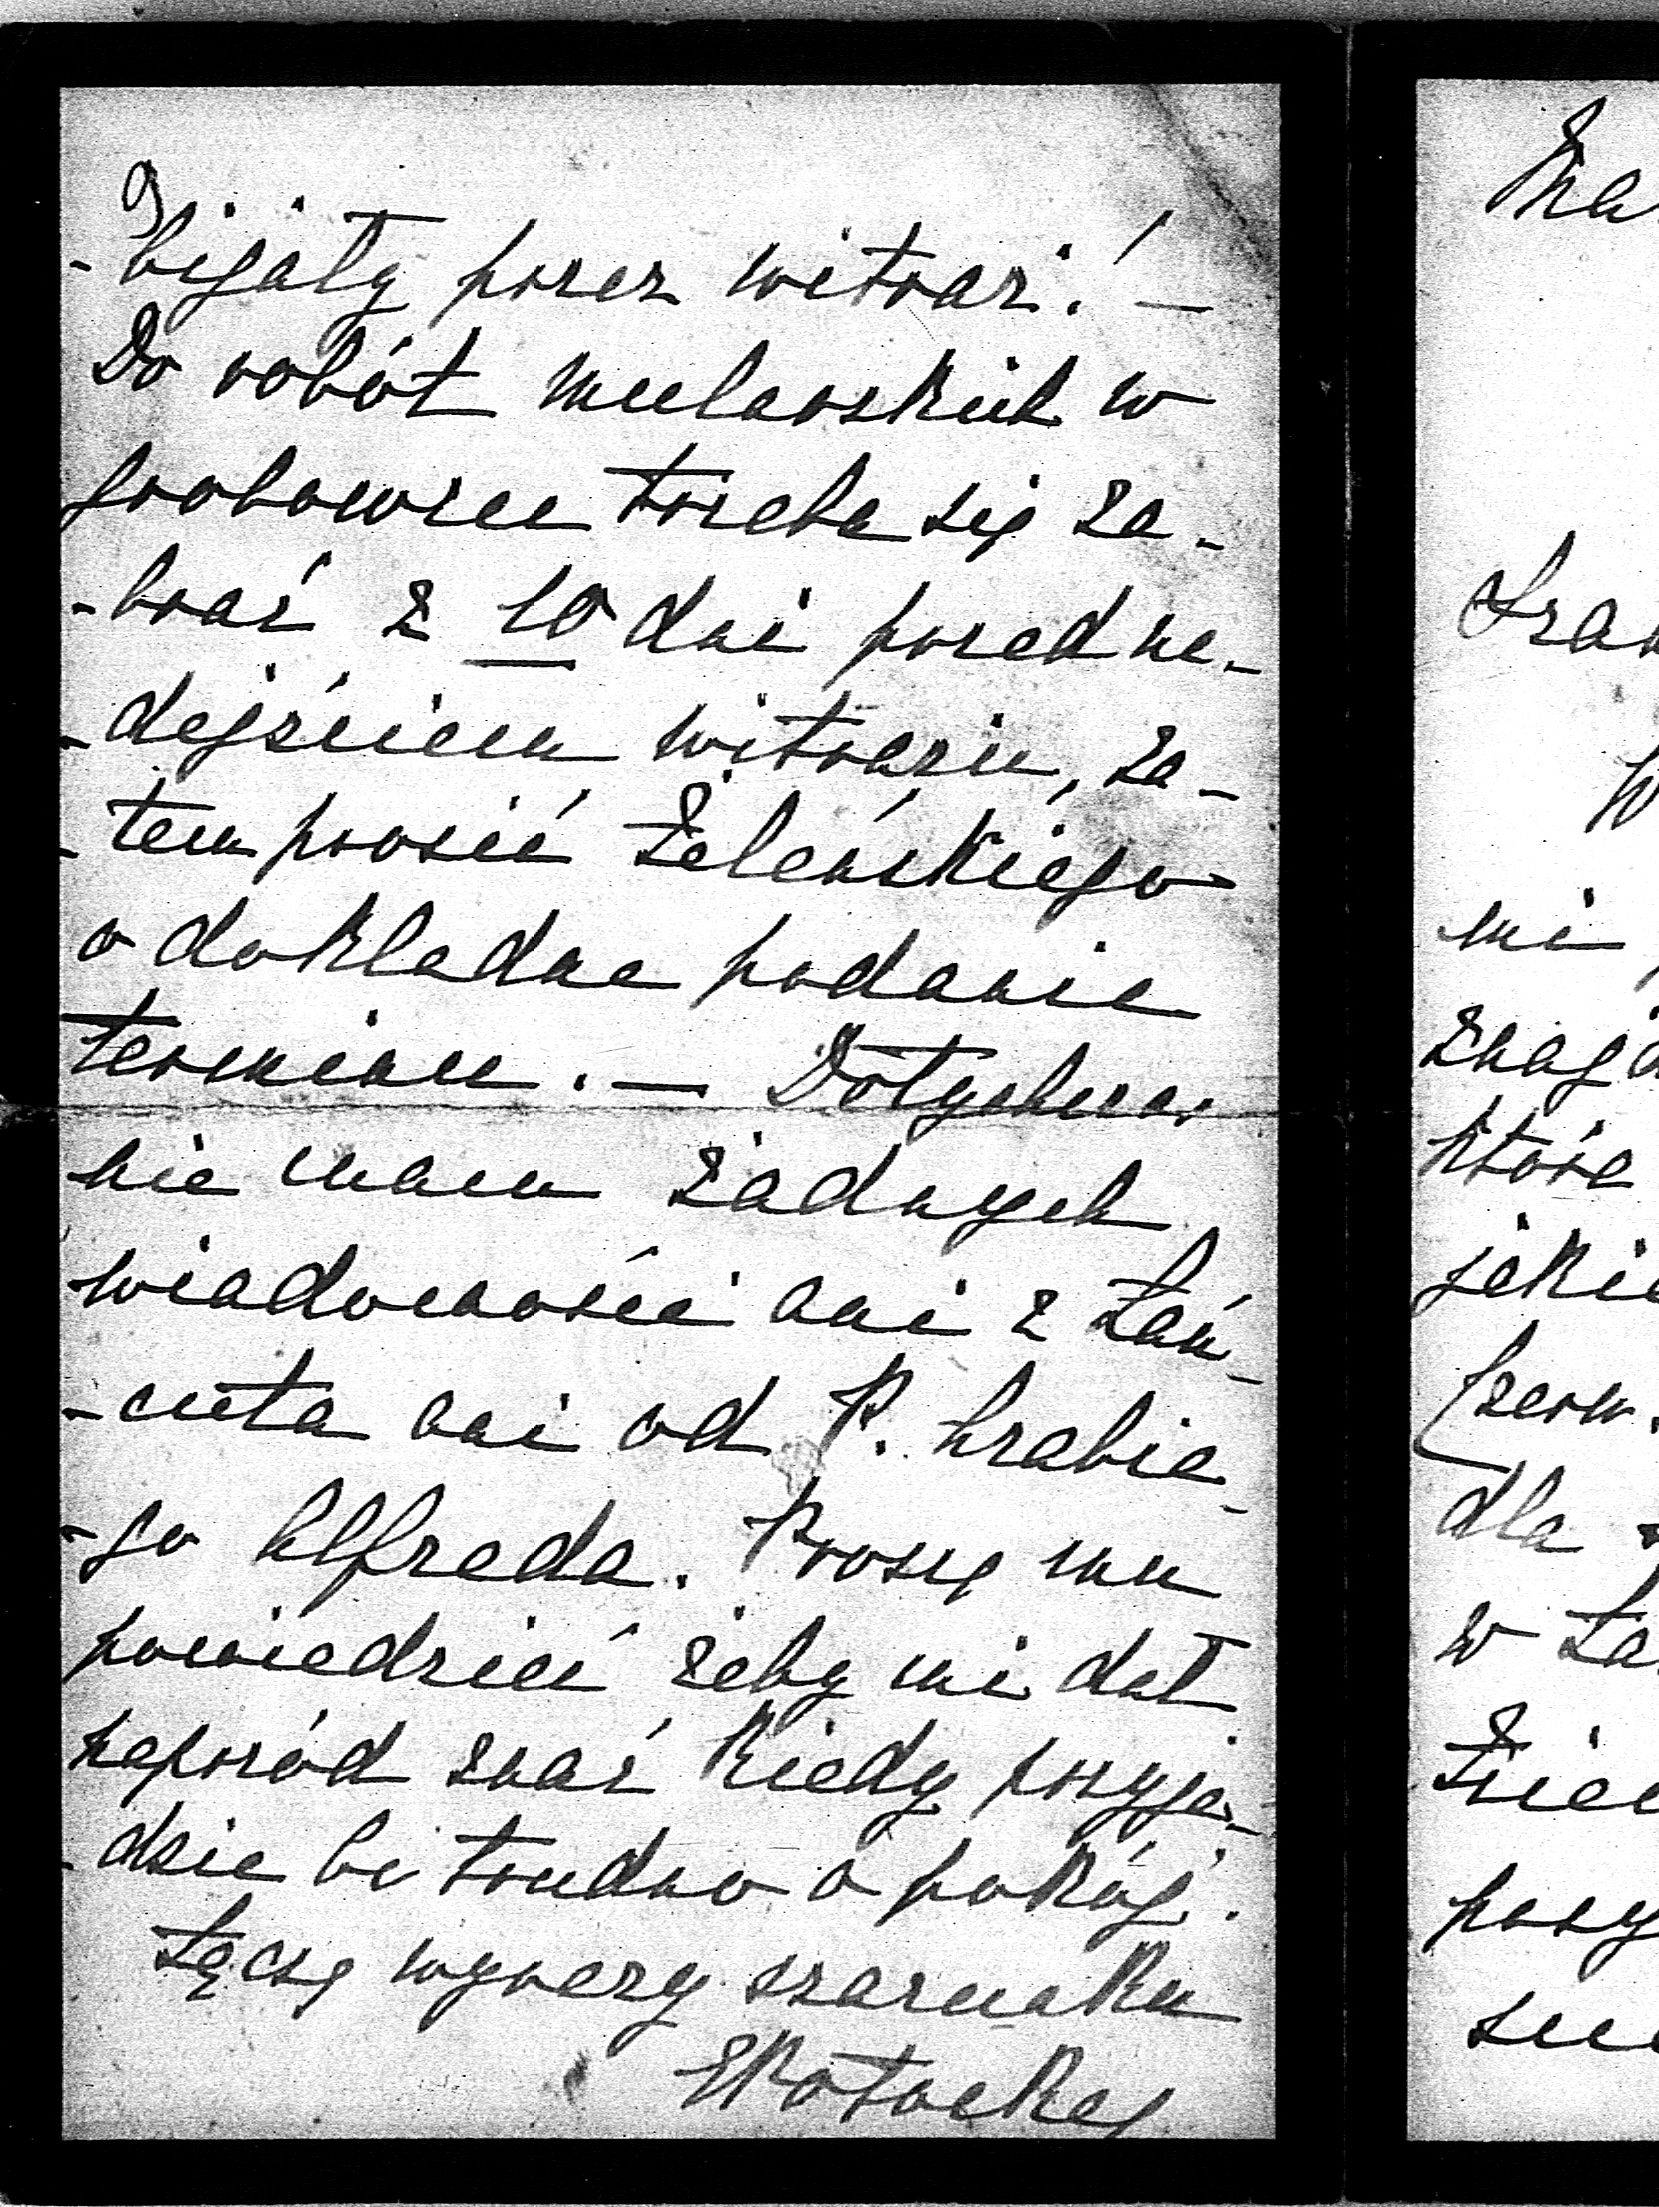 -bijały przez witraż! —
Do robót mularskich w
grobowcu trzeba się za-
-brać z 10 dni przed na-
-dejściem witrażu, za-
-tem prosić Żeleńskiego
o dokładne podanie
terminu. — Dotychczas
nie mam żadnych
wiadomości ani z Łań-
-cuta ani od P. hrabie-
-go Alfreda. Proszę mu
powiedzieć żeby mi dał
naprzód znać kiedy przyje-
-dzie bo trudno o pokój.
Łączę wyrazy szacunku
EPotocka
mi
które
dla